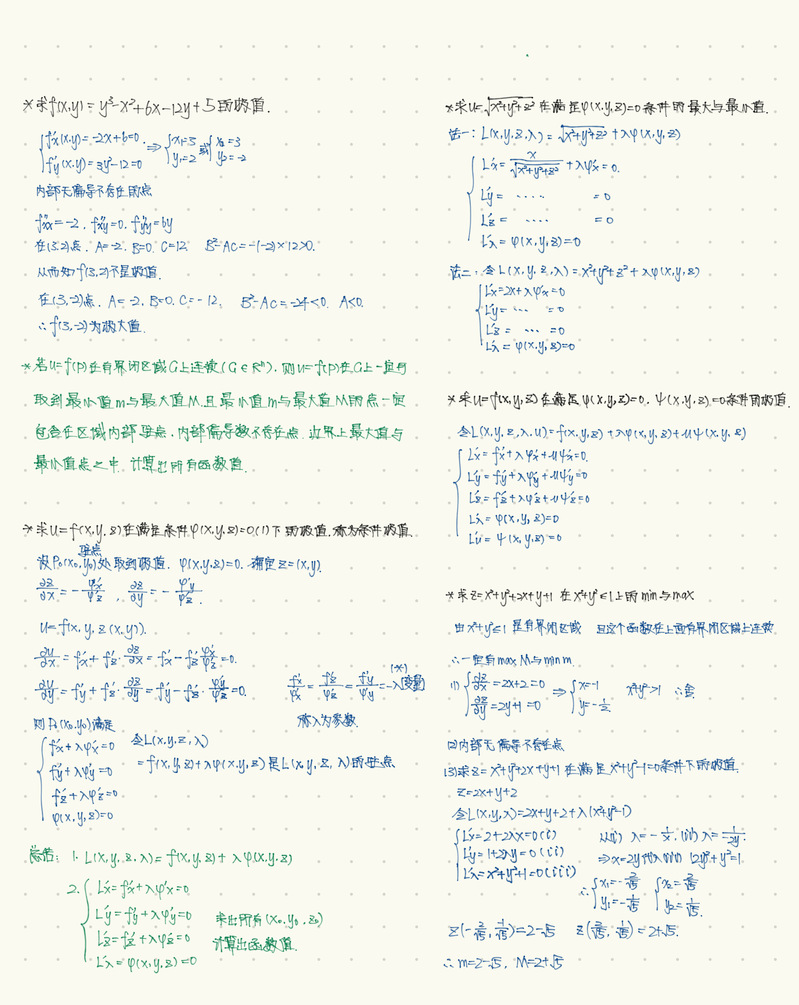 *求f(x,y)=y³-x²+6x-12y+5的极值.
{f'x(x,y)=-2x+6=0. ⇒ {x₁=3 或 {x₂=3
f'y(x,y)=3y²-12=0 y₁=2 y₂=-2
内部无偏导不存在的点
f''xx=-2, f''xy=0, f''yy=6y
在(3,2)点, A=-2, B=0, C=12, B²-AC=-(-2)×12>0.
从而知f(3,2)不是极值.
在(3,-2)点, A=-2, B=0, C=-12, B²-AC=-24<0, A<0.
∴f(3,-2)为极大值.
*若u=f(p)在有界闭区域G上连续(G∈Rⁿ), 则u=f(p)在G上一定可
取到最小值m与最大值M,且最小值m与最大值M的点一定
包含在区域内部驻点,内部偏导数不存在点,边界上最大值与
最小值点之中,计算出所有函数值.
*求u=f(x,y,z)在满足条件φ(x,y,z)=0(1)下的极值,称为条件极值.
驻点
设P₀(x₀,y₀)处取到极值, φ(x,y,z)=0. 确定z=(x,y).
∂z/∂x=-φ'x/φ'z, ∂z/∂y=-φ'y/φ'z.
u=f(x,y,z(x,y)).
∂u/∂x=f'x+f'z·∂z/∂x=f'x-f'z φ'x/φ'z=0.
∂u/∂y=f'y+f'z·∂z/∂y=f'y-f'z·φ'y/φ'z=0.
f'x/φ'x=f'z/φ'z=f'y/φ'y=-λ(变量)
称λ为参数.
则P₀(x₀,y₀)满足
{f'x+λφ'x=0
f'y+λφ'y=0
f'z+λφ'z=0
φ(x,y,z)=0
令L(x,y,z,λ)
=f(x,y,z)+λφ(x,y,z)是L(x,y,z,λ)的驻点
总结: 1. L(x,y,z,λ)=f(x,y,z)+λφ(x,y,z)
2. {L'x=f'x+λφ'x=0
L'y=f'y+λφ'y=0
L'z=f'z+λφ'z=0
L'λ=φ(x,y,z)=0
求出所有(x₀,y₀,z₀)
计算出函数值.
*求u=√x²+y²+z² 在满足φ(x,y,z)=0条件的最大与最小值.
法一: L(x,y,z,λ)=√x²+y²+z²+λφ(x,y,z)
{L'x=x/√x²+y²+z²+λφ'x=0.
L'y= ···· =0
L'z= ···· =0
L'λ=φ(x,y,z)=0
法二: 令L(x,y,z,λ)=x²+y²+z²+λφ(x,y,z)
{L'x=2x+λφ'x=0
L'y= ··· =0
L'z= ··· =0
L'λ=φ(x,y,z)=0
*求u=f(x,y,z)在满足φ(x,y,z)=0, ψ(x,y,z)=0条件的极值.
令L(x,y,z,λ,u)=f(x,y,z)+λφ(x,y,z)+uψ(x,y,z)
{L'x=f'x+λφ'x+uψ'x=0.
L'y=f'y+λφ'y+uψ'y=0
L'z=f'z+λφ'z+uψ'z=0
L'λ=φ(x,y,z)=0
L'u=ψ(x,y,z)=0
*求z=x²+y²+2x+y+1 在x²+y²≤1上的min与max
由x²+y²≤1是有界闭区域 且这个函数在上面有界闭区域上连续
∴一定有max M与min m.
(1) {∂z/∂x=2x+2=0 ⇒ {x=-1 x²+y²>1 ∴舍
∂z/∂y=2y+1=0 y=-1/2
(2)内部无偏导不存在点
(3)求z=x²+y²+2x+y+1在满足x²+y²-1=0条件下的极值.
z=2x+y+2
令L(x,y,λ)=2x+y+2+λ(x²+y²-1)
{L'x=2+2λx=0(i)
L'y=1+2λy=0(ii)
L'λ=x²+y²-1=0(iii)
从(i) λ=-1/x, (ii) λ=-1/2y.
⇒x=2y代入(iii) (2y)²+y²=1
∴{x₁=-2/√5 {x₂=2/√5
y₁=-1/√5 y₂=1/√5.
z(-2/√5, 1/√5)=2-√5 z(2/√5, 1/√5)=2+√5.
∴m=2-√5, M=2+√5